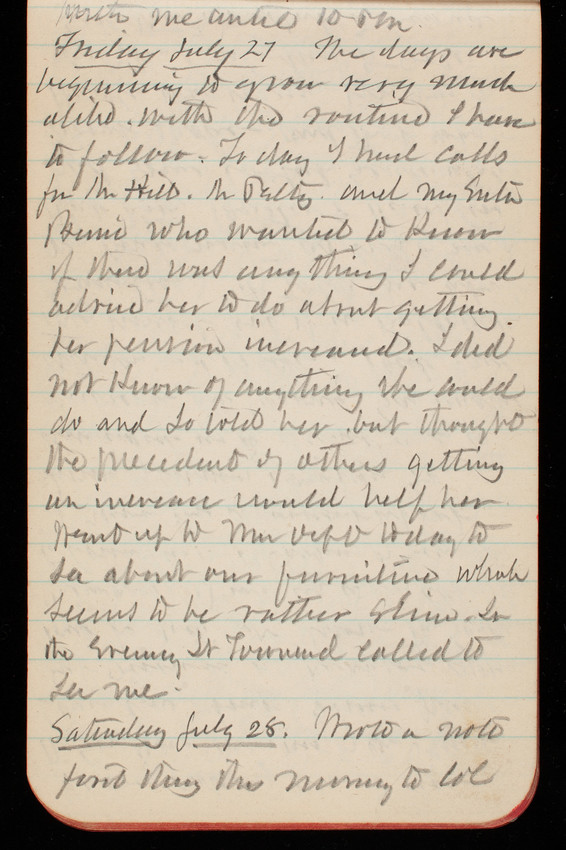 with me until 10 P.M.
Friday July 27 The days are
beginning to grow very much
alike with the routine I have
to follow. Today I had calls
for Mr Hill. Mr Peltz and my
who wanted to know
if there was anything I could
advise her to do about getting
her pension increased. I did
not know of anything she could
do and so told her but thought
the precedent of others getting
an increase would help her
Went up to War Dept today to
see about our furniture which
seems to be rather slim. In
the Evening Lt Townsend called to
see me.
Saturday July 28. Wrote a note
first thing this morning to Col